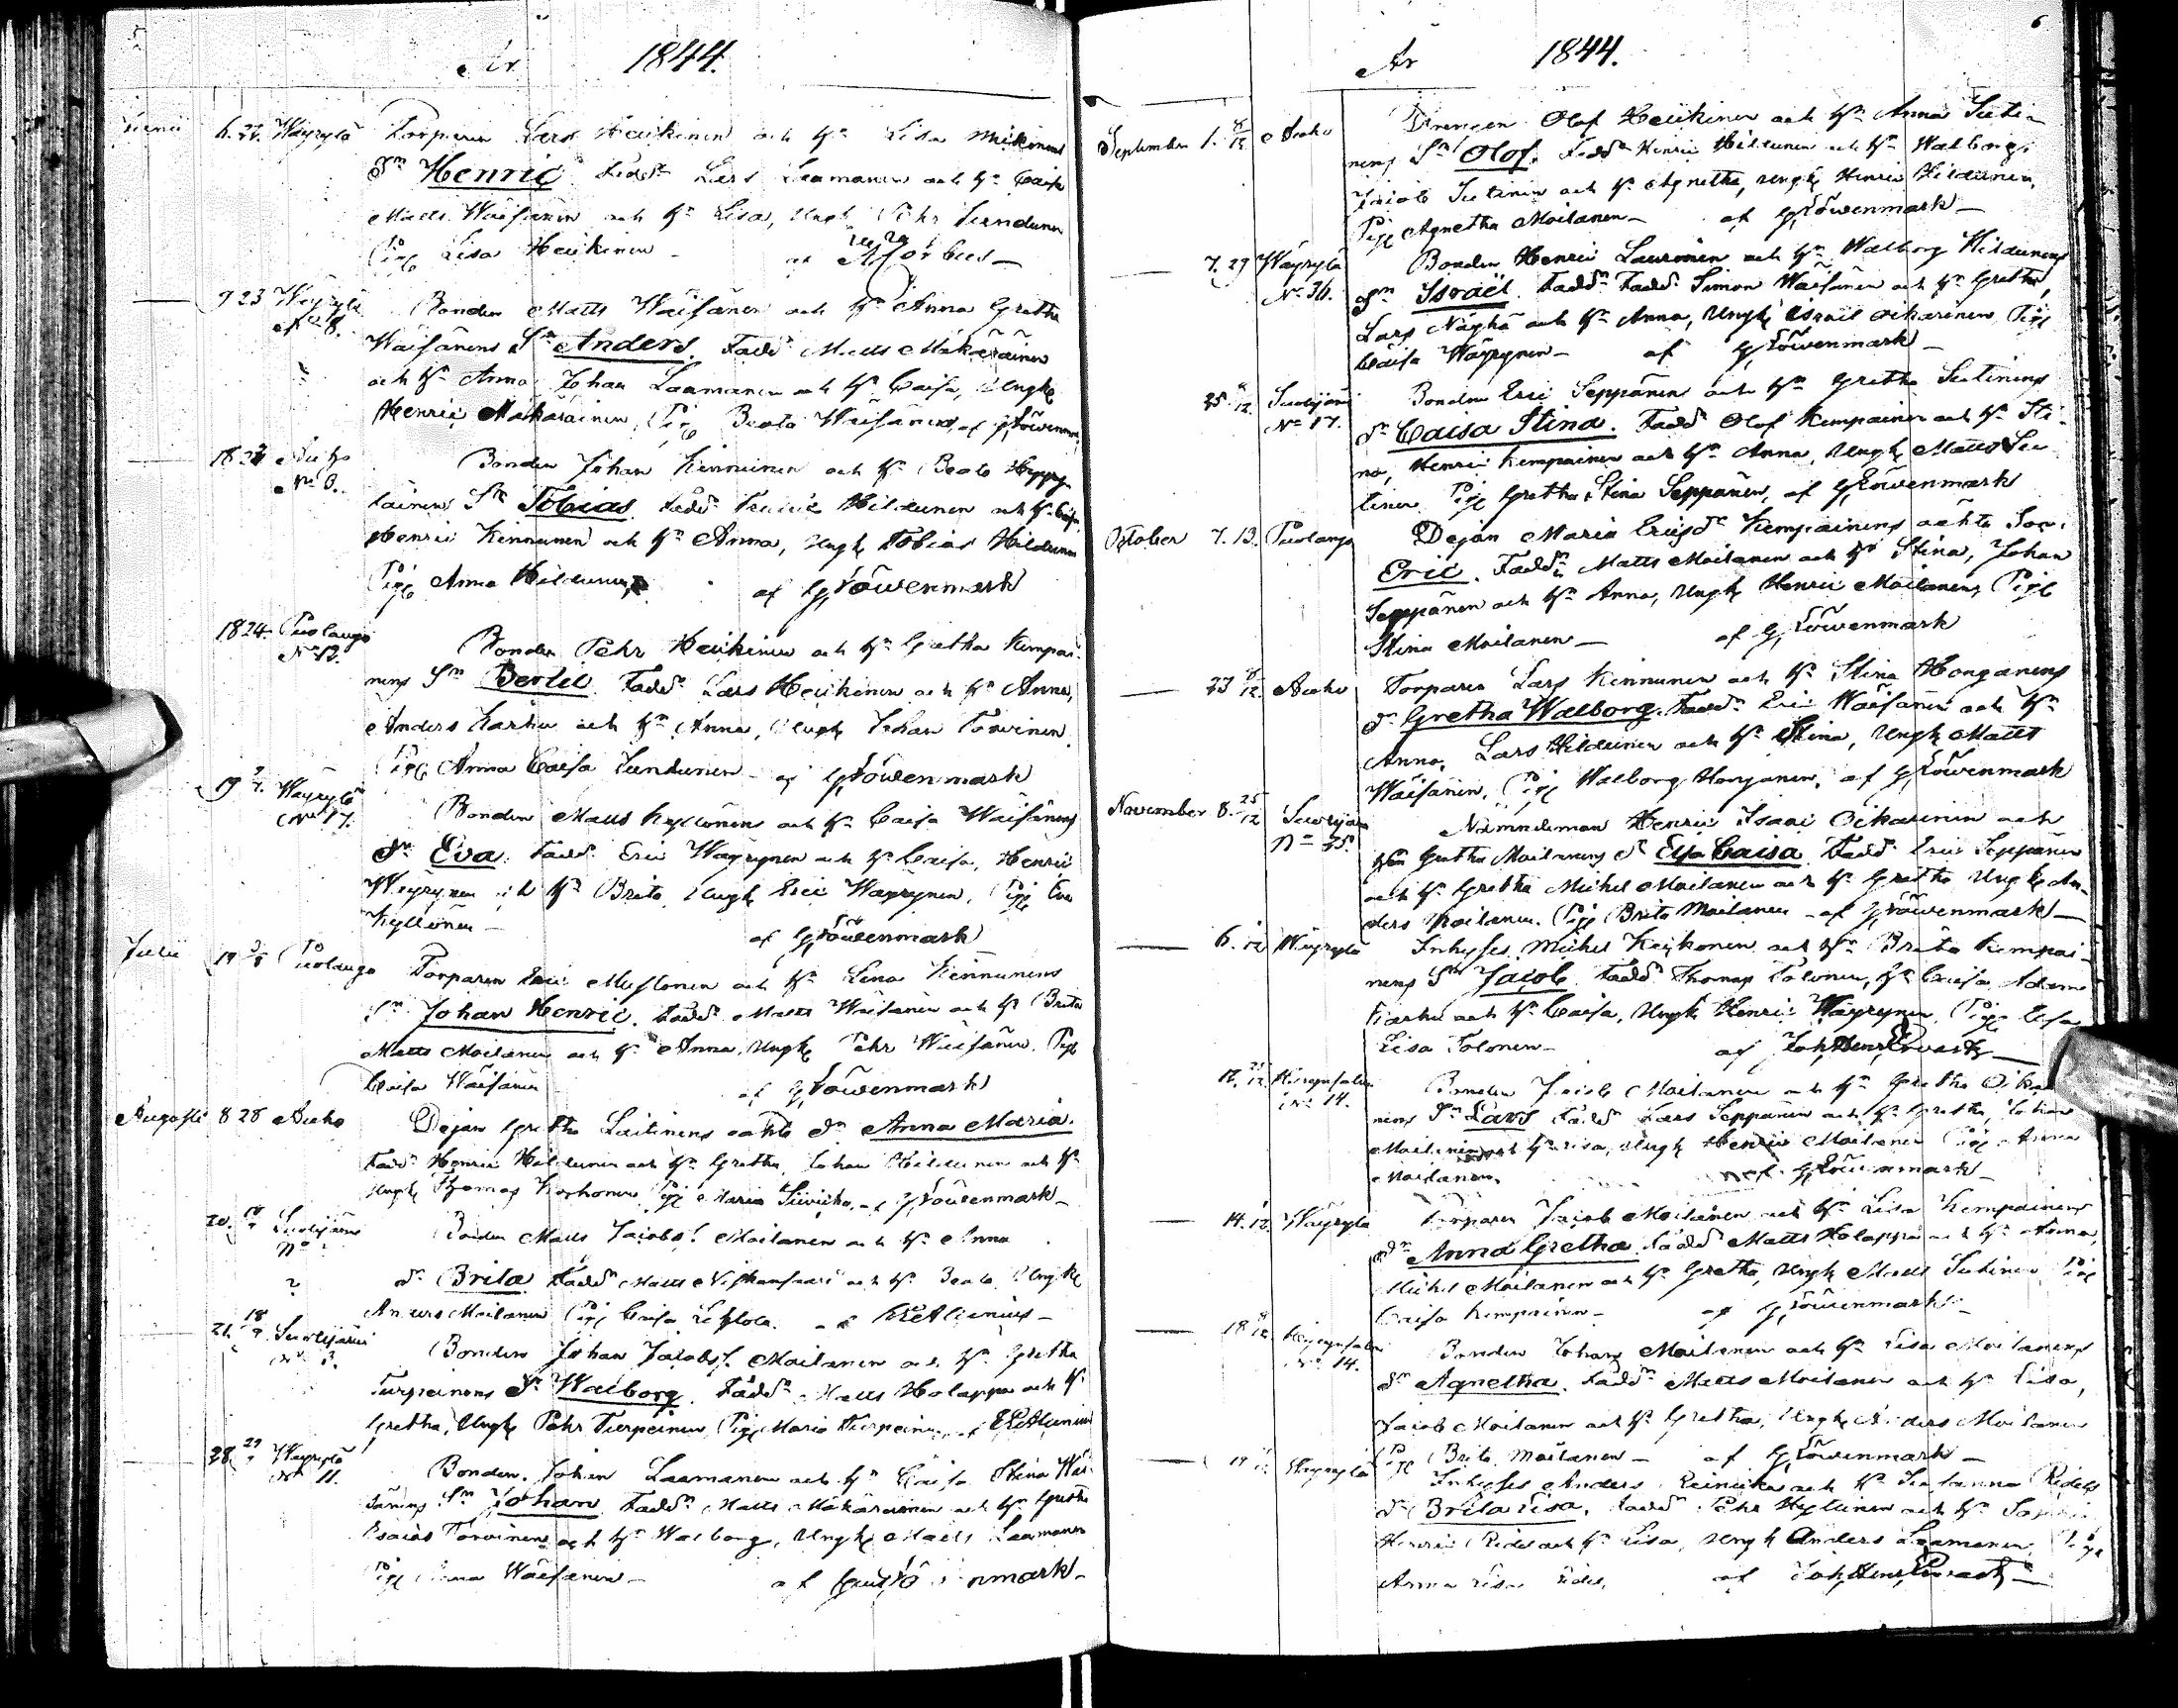 År 1844.
Junii 6. 22. Wäyrylä Torparen Lars Heikinen och h:n Lisa Mikonens
S:n Henric Fadd:r Lars Laamanen och h:n Caisa
Matts Waisänen och h:n Lisa, Ungk Pehr Jundunen
Pig Lisa Heikinen af Forbus
9 23 Wäyrylä Bonden Matts Waisänen och h:n Anna Gretha
N:o 8. Waisänens S:n Anders. Fadd:r Matts Mäkäräinen
och h:n Anna Johan Laamanen och h:n Caisa, Ungk
Henric Mäkäräinen, Pig Beata Waisänen, af G Löwenmark
18 23 Auho Bonden Johan Kinnunen och h:n Beata
N:o 6. S:n Tobias. Fadd:r Hildunen och h:n
Henric Kinnunen och h:n Anna, Ungk Tobias Hildunen
Pig Anna Hildunen af G Löwenmark
18 24 Puolango Bonden Pehr Heikinen och h:n Gretha Kempai-
N:o 12. nens S:n Bertil Fadd:r Lars Heikinen och h:n Anna,
Anders Karhu och h:n Anna, Ungk Johan Törwinen
Pig Anna Caisa Jundunen af G Löwenmark
19 Wäyrylä Bonden Matts Kyllönen och h:n Caisa Waisänens
N:o 17. D:r Eva. Fadd:r Eric Wäyrynen och h:n Caisa, Henric
Wäyrynen och h:n Brita, Ungk Eric Wäyrynen, Pig Eva
Kyllönen af G Löwenmark
Julii 19 Puolango Torparen Eric Mustonen och h:n Lena Kinnunens
S:n Johan Henric. Fadd:r Matts Waisänen och h:n Brita
Matts Moilanen och h:n Anna, Ungk Pehr Waisänen, Pig
Caisa Waisänen af G Löwenmark
Augusti 8 28 Auho Dejan Gretha Laitinens oäkta D:r Anna Maria.
Fadd:r Henric Hildunen och h:n Gretha, Johan Hildunen och h:n
Ungk Thomas Korhonen Pig Maria af G Löwenmark
20. Suolijärvi Bonden Matts Jacobs: Moilanen och h:n Anna
N:o
? D:r Brita Fadd:r Matts och h:n Beata Ungk
Anders Moilanen Pig Caisa af Alcenius
21. 18 Suolijärvi Bonden Johan Jacobs: Moilanen och h:n Gretha
N:o 3. Turpeinens D:r Walborg. Fadd:r Matts Holappa och h:n
Gretha, Ungk Pehr Turpeinen, Pig Maria Turpeinen, af Alcenius
28. 29 Wäyrylä Bonden Johan Laamanen och h:n Caisa Stina Wai-
N:o 11. sänens S:n Johan Fadd:r Matts Mäkäräinen och h:n Gretha
Esaias Törwinen och h:n Walborg, Ungk Matts Laamanen
Pig Anna Waisänen af Löwenmark
6
År 1844.
September 1. 8/12 Auho Drengen Olof Heikinen och h:n Anna Suti-
nens S:n Olof. Fadd:r Henric Hildunen och h:n Walborg,
Jacob Sutinen och h:n Agnetha, Ungk Henric Hildunen,
Pig Agnetha Moilanen af G Löwenmark
7. 29 Wäyrylä Bonden Henric Lauronen och h:n Walborg Hildunens
N:o 36. S:n Israël. Fadd:r Fadd:r Simon Waisänen och h:n Gretha,
Lars Näyhä och h:n Anna, Ungk Israel Oikarinen Pig
Caisa Wäyrynen af G Löwenmark
25 /12. Suolijärvi Bonden Eric Seppänen och h:n Gretha Sutinens
N:o 17. D:r Caisa Stina. Fadd:r Olof Kempainen och h:n Sti-
na, Henric Kempainen och h:n Anna, Ungk Matts Su-
tinen Pig Gretha Stina Seppänen, af G Löwenmark
October 7. 13. Puolango Dejan Maria Ericsd:r Kempainens oäkta Son
Eric. Fadd:r Matts Moilanen och h:n Stina, Johan
Seppänen och h:n Anna, Ungk Henric Moilanen, Pig
Stina Moilanen af G Löwenmark
23 8/12. Auho Torparen Lars Kinnunen och h:n Stina Honganens
D:r Gretha Walborg. Fadd:r Eric Waisänen och h:n
Anna, Lars Hildunen och h:n Stina, Ungk Matts
Waisänen, Pig Walborg Honganen, af G Löwenmark
November 8. 25/12 Suolijärvi Nämndeman Henric Isaac Oikarinen och
N:o 35. h:n Gretha Moilanens D:r Eva Caisa. Fadd:r Eric Seppänen
och h:n Gretha Michel Moilanen och h:n Gretha Ungk An-
ders Moilanen. Pig Brita Moilanen af G Löwenmark
6. 1/12 Wäyrylä Inhyses Michel Keykonen och h:n Brita Kempai-
nens S:n Jacob. Fadd:r Thomas Tolonen, h:n Caisa Adam
Karhu och h:n Caisa, Ungk Henric Wäyrynen, Pig
Lisa Tolonen af Joh Henr
12. 25/12. Bonden Jacob Moilanen och h:n Gretha
N:o 14. nens S:n Lars Fadd:r Lars Seppänen och h:n Gretha, Johan
Moilanen och h:n Lisa, Ungk Henric Moilanen Pig Anna
Moilanen, af G Löwenmark
14. /12. Wäyrylä Torparen Jacob Moilanen och h:n Lisa Kempainens
D:r Anna Gretha Fadd:r Matts Holappa och h:n Anna,
Michel Moilanen och h:n Gretha, Ungk Matts Sutinen Pig
Caisa Kempainen af G Löwenmark
18 8/12. Bonden Johan Moilanen och h:n Lisa Moilanens
N:o 14. D:r Agnetha. Fadd:r Matts Moilanen och h:n Lisa,
Jacob Moilanen och h:n Gretha, Ungk Anders Moilanen
Pig Brita Moilanen af G Löwenmark
19 Wäyrylä Inhyses Anders och h:n Susanna
D:r Brita Lisa. Fadd:r Pehr och h:n
Henric och h:n Lisa, Ungk Anders Laamanen, Pig
Anna Lisa af Joh Henr